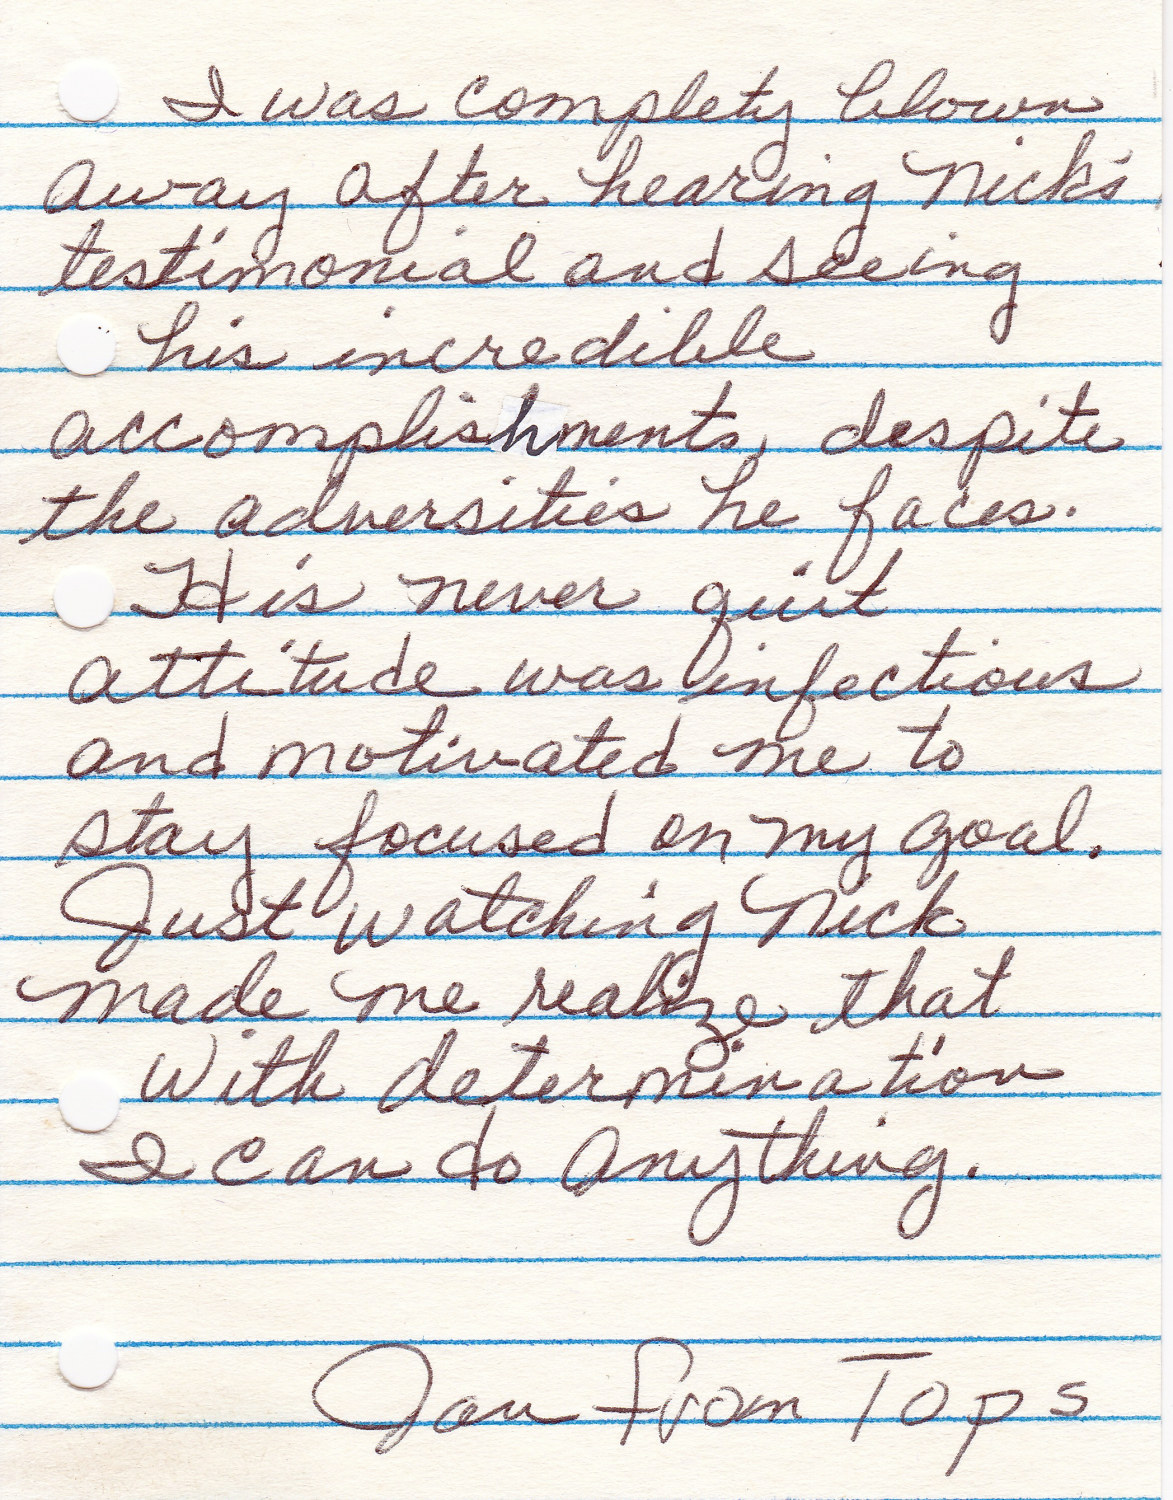 I was complety blown
away after hearing Nick's
testimonial and seeing
his incredible
accomplishments, despite
the adversities he faces.
His never quit
attitude was infectious
and motivated me to
stay focused on my goal.
Just watching Nick
made me realize that
With determination
I can do anything.
Jan from Tops